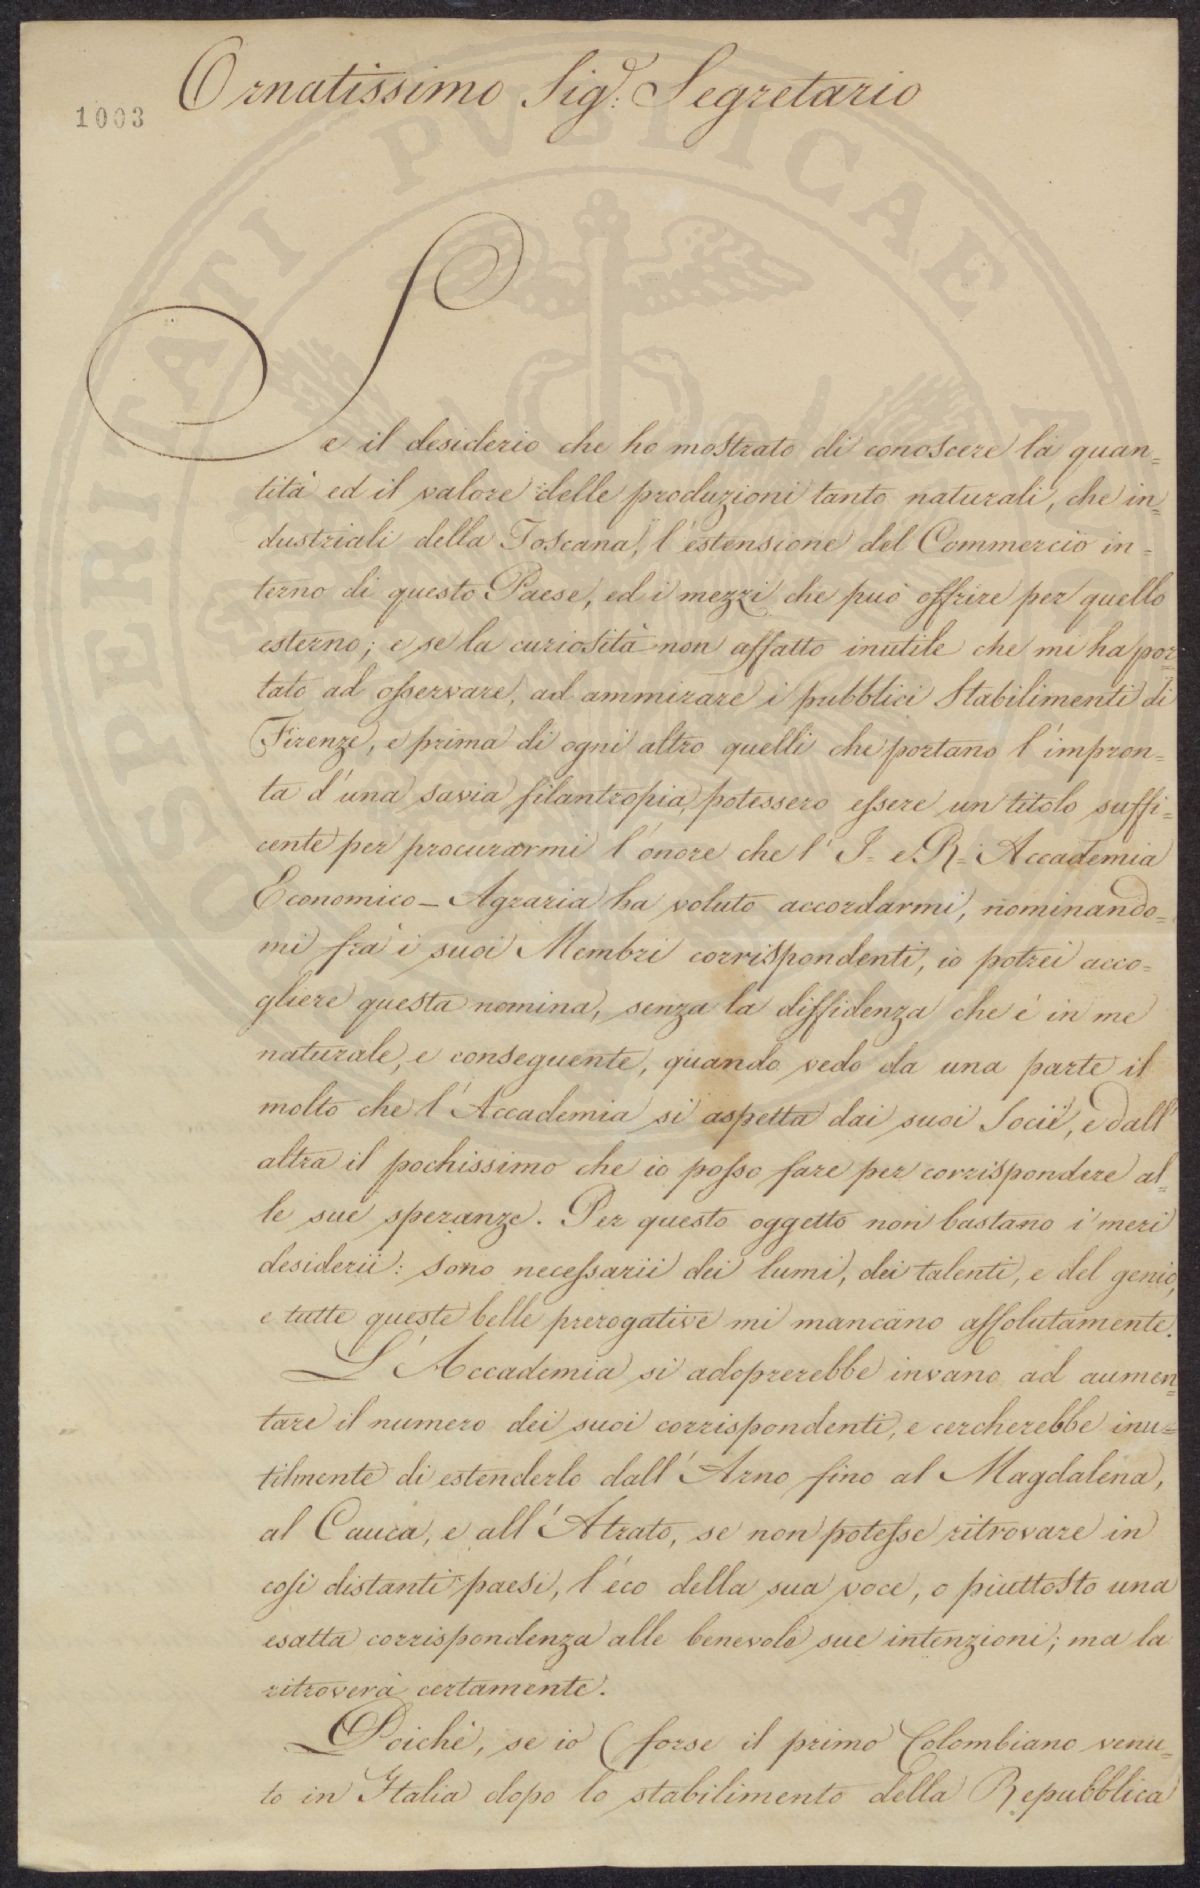 Ornatissimo Sig.r Segretario
1003
Se il desiderio che ho mostrato di conoscere la quan=
tità ed il valore delle produzioni tanto naturali, che in=
dustriali della Toscana, l'estensione del Commercio in=
terno di questo Paese, ed i mezzi che può offrire per quello
esterno; e se la curiosità non affatto inutile che mi ha por=
tato ad osservare, ad ammirare i pubblici Stabilimenti di
Firenze, e prima di ogni altro quelli che portano l'impron=
ta d'una savia filantropia, potessero essere un titolo suffi=
cente per procurarmi l'onore che l'I= e R= Accademia
Economico-Agraria ha voluto accordarmi, nominando=
mi fra i suoi Membri corrispondenti, io potrei acco=
gliere questa nomina, senza la diffidenza che è in me
naturale, e conseguente, quando vedo da una parte il
molto che l'Accademia si aspetta dai suoi Socii, e dall'
altra il pochissimo che io posso fare per corrispondere al=
le sue speranze. Per questo oggetto non bastano i meri
desiderii: sono necessarii dei lumi, dei talenti, e del genio,
e tutte queste belle prerogative mi mancano assolutamente.
L'Accademia si adoprerebbe invano ad aumen=
tare il numero dei suoi corrispondenti, e cercherebbe inu=
tilmente di estenderlo dall'Arno fino al Magdalena,
al Cauca, e all'Atrato, se non potesse ritrovare in
così distanti paesi, l'éco della sua voce, o piuttosto una
esatta corrispondenza alle benevole sue intenzioni; ma la
ritroverà certamente.
Poichè, se io (forse il primo Colombiano venu=
to in Italia dopo lo stabilimento della Repubblica
PROSPERITATI PVBLICAE